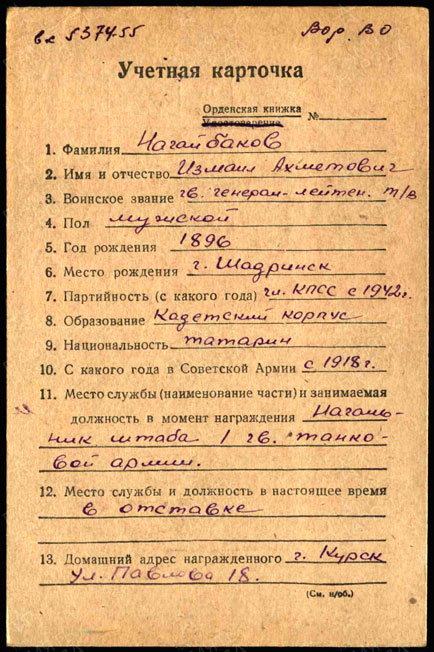 вх 537455 Вор. ВО
Учетная карточка
Орденская книжка
Удостоверение №
1. Фамилия Нагайбаков
2. Имя и отчество Измаил Ахметович
3. Воинское звание гв. генерал-лейтен. т/в
4. Пол мужской
5. Год рождения 1896
6. Место рождения г. Шадринск
7. Партийность (с какого года) чл. КПСС с 1942г.
8. Образование Кадетский корпус
9. Национальность татарин
10. С какого года в Советской Армии с 1918г.
11. Место службы (наименование части) и занимаемая
должность в момент награждения Началь-
ник штаба 1 гв. танко-
вой армии.
12. Место службы и должность в настоящее время
в отставке
13. Домашний адрес награжденного г. Курск
ул. Павлова 18.
(См. н/об.)